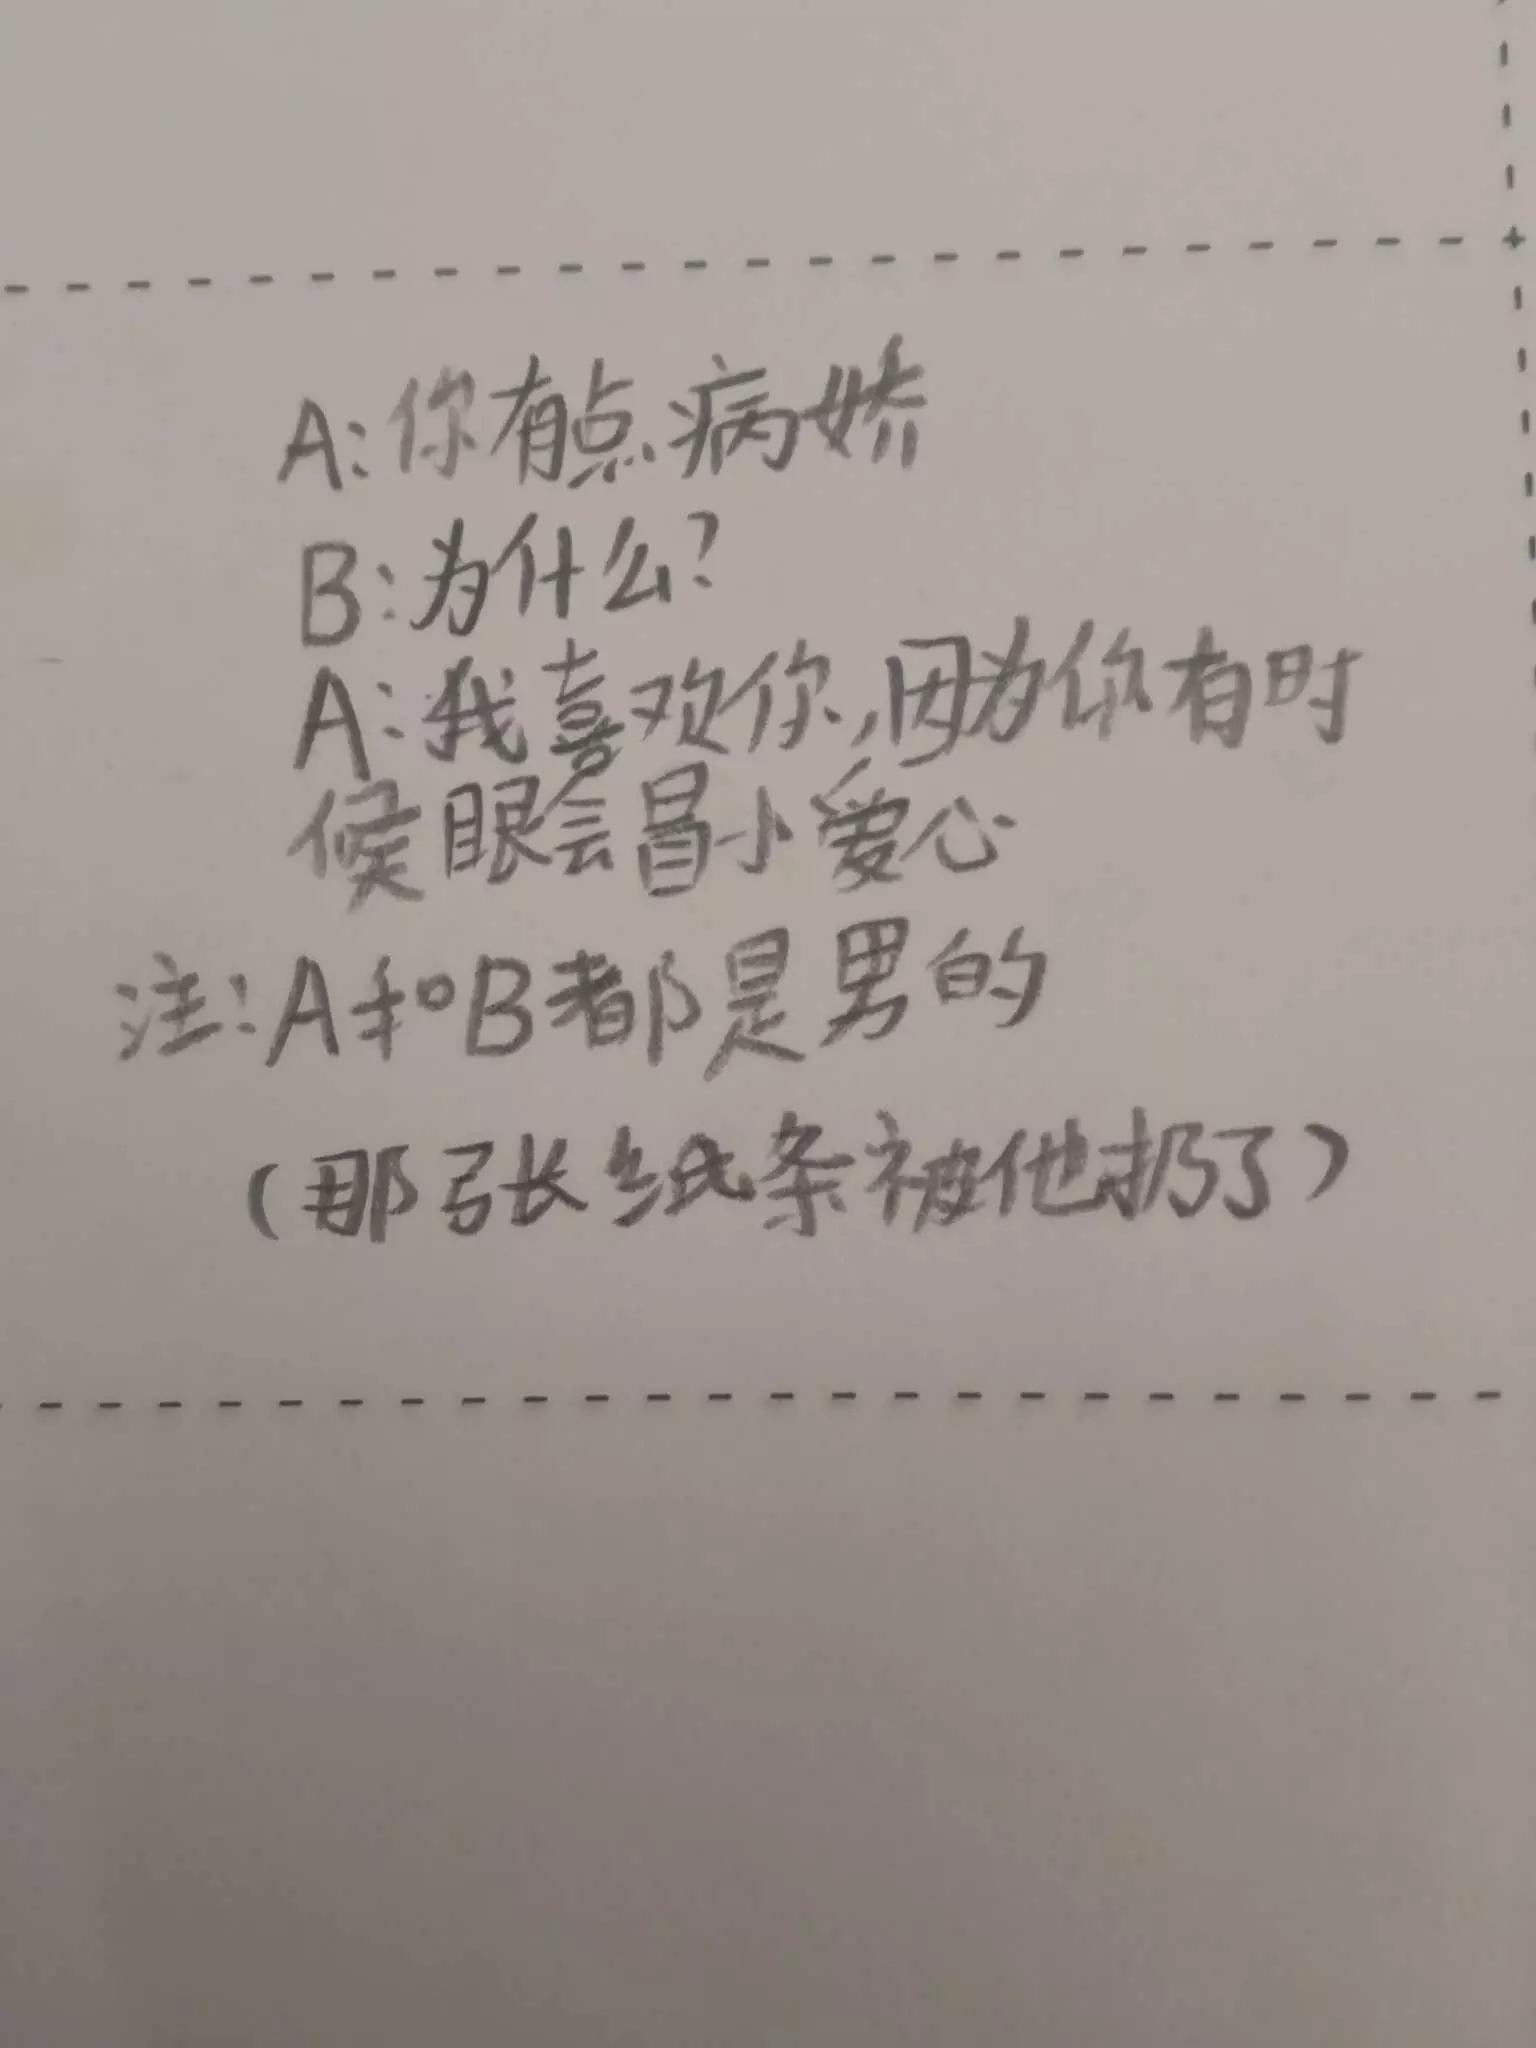 A:你有点病娇
B:为什么?
A:我喜欢你,因为你有时
候眼会冒小爱心
注:A和B都是男的
(那张纸条被他扔了)